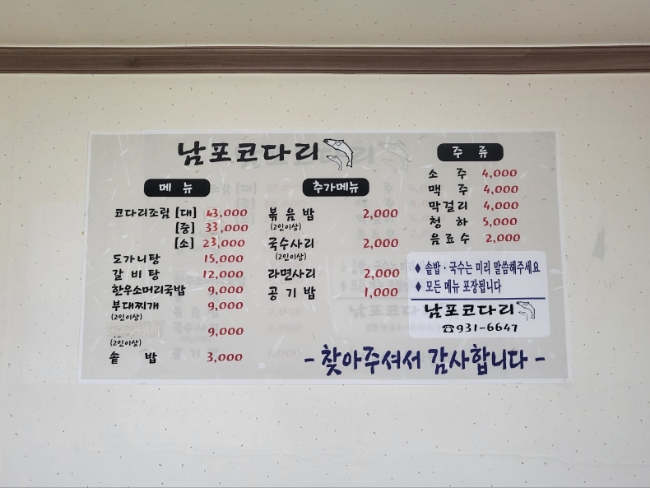 남포코다리
메 뉴
코다리조림 [대] 43,000
[중] 33,000
[소] 23,000
도가니탕 15,000
갈 비 탕 12,000
한우소머리국밥 9,000
부대찌개 9,000
(2인이상)
9,000
(2인이상)
솥 밥 3,000
추가메뉴
볶 음 밥 2,000
(2인이상)
국수사리 2,000
(2인이상)
라면사리 2,000
공 기 밥 1,000
주 류
소 주 4,000
맥 주 4,000
막걸리 4,000
청 하 5,000
음료수 2,000
♦ 솥밥·국수는 미리 말씀해주세요
♦ 모든 메뉴 포장됩니다
남포코다리
☎931-6647
- 찾아주셔서 감사합니다 -